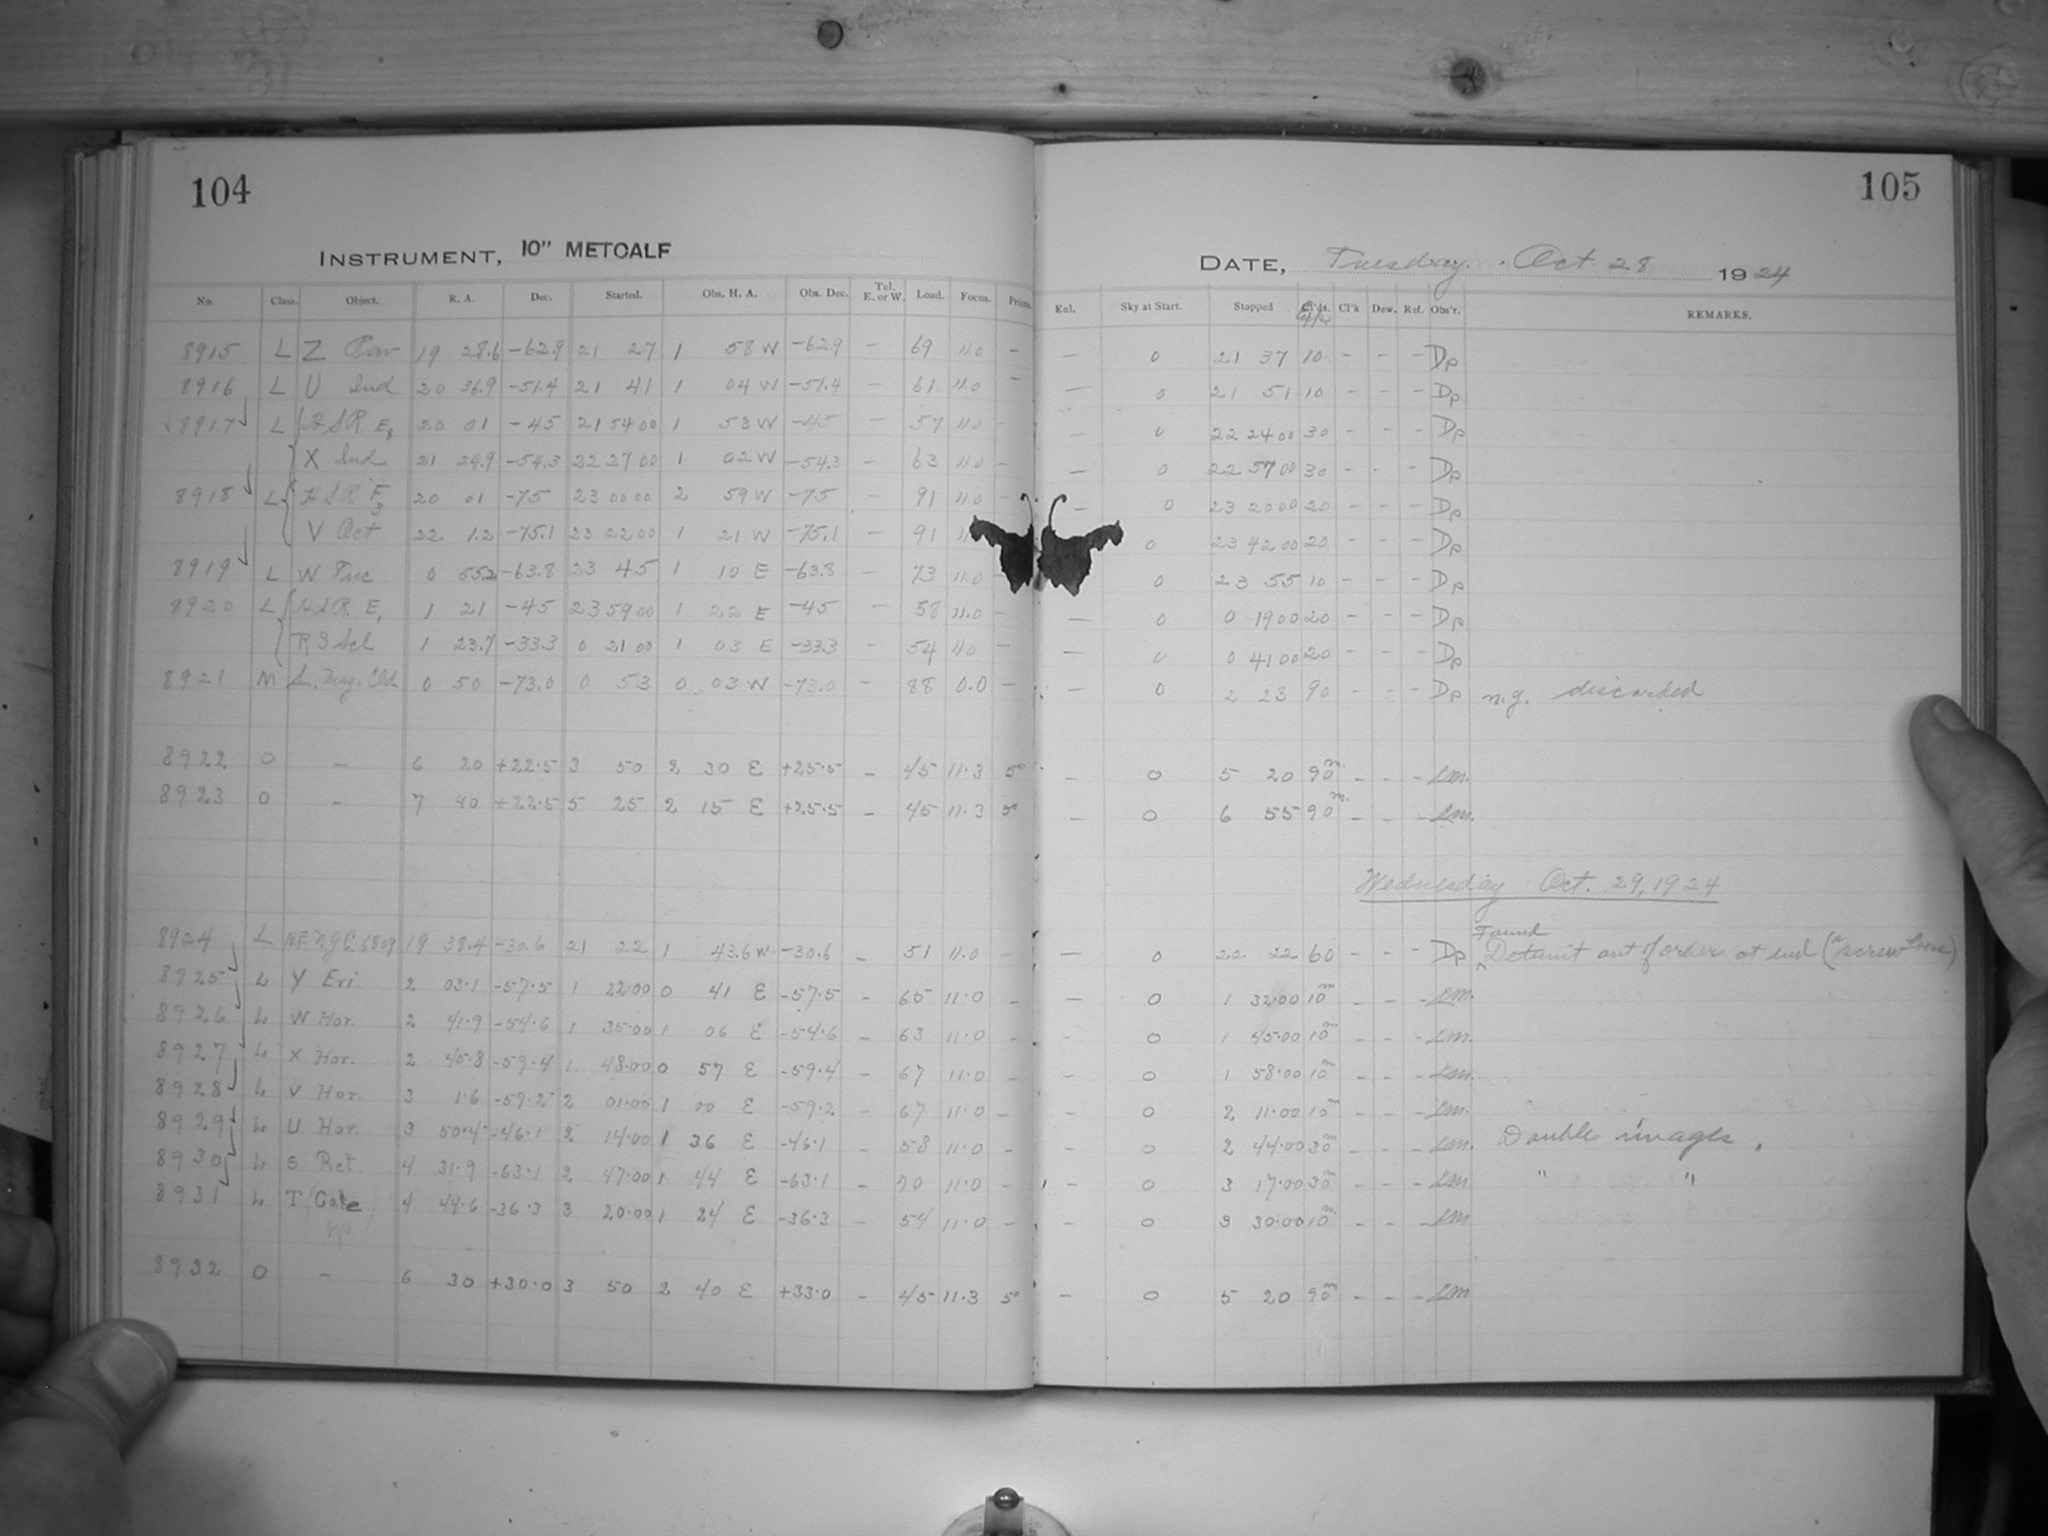 104
INSTRUMENT, 10" METCALF
No. Class. Object. R. A. Dec. Started. Obs. H. A. Obs. Dec. Tel. E. or W. Load. Focus. Prism.
8915 L Z Pav 19 28.6 -62.9 21 27 1 58 W -62.9 - 69 11.0 -
8916 L U Ind 20 36.9 -51.4 21 41 1 04 W -51.4 - 61 11.0 -
8917 L HSR E8 20 01 -45 21 54 00 1 53 W -45 - 57 11.0 -
X Ind 21 29.9 -54.3 22 27 00 1 02 W -54.3 - 63 11.0 -
8918 L HSR F3 20 01 -75 23 00 00 2 59 W -75 - 91 11.0 -
V Oct 22 1.2 -75.1 23 22 00 1 21 W -75.1 - 91
8919 L W Tuc 0 55.2 -63.8 23 45 1 10 E -63.8 - 73 11.0 -
8920 L HSR E1 1 21 -45 23 59 00 1 22 E -45 - 58 11.0 -
RS Scl 1 23.7 -33.3 0 21 00 1 03 E -33.3 - 54 11.0 -
8921 M Sm. Mag. Cld 0 50 -73.0 0 53 0 03 W -73.0 - 88 0.0 -
8922 O - 6 20 +22.5 3 50 2 30 E +25.5 - 45 11.3 5°
8923 O - 7 40 +22.5 5 25 2 15 E +25.5 - 45 11.3 5°
8924 L N.F. N.G.C. 6809 19 38.4 -30.6 21 22 1 43.6 W -30.6 - 51 11.0 -
8925 L Y Eri. 2 03.1 -57.5 1 22.00 0 41 E -57.5 - 65 11.0 -
8926 L W Hor. 2 41.9 -54.6 1 35.00 1 06 E -54.6 - 63 11.0 -
8927 L X Hor. 2 45.8 -59.4 1 48.00 0 57 E -59.4 - 67 11.0 -
8928 L V Hor. 3 1.6 -59.2 2 01.00 1 00 E -59.2 - 67 11.0 -
8929 L U Hor. 3 50.4 -46.1 2 14.00 1 36 E -46.1 - 58 11.0 -
8930 L S Ret. 4 31.9 -63.1 2 47.00 1 44 E -63.1 - 70 11.0 -
8931 L T Cae 4 44.6 -36.3 3 20.00 1 24 E -36.3 - 54 11.0 -
8932 O - 6 30 +30.0 3 50 2 40 E +33.0 - 45 11.3 5°
105
DATE, Tuesday. Oct. 28 1924
Enl. Sky at Start. Stopped Cl'ds. Cl'k Dew. Ref. Obs'r. REMARKS.
- 0 21 37 10 - - - Dp
- 0 21 51 10 - - - Dp
- 0 22 24 00 30 - - - Dp
- 0 22 57 00 30 - - - Dp
- 0 23 20 00 20 - - - Dp
0 23 42 00 20 - - - Dp
0 23 55 10 - - - Dp
- 0 0 19 00 20 - - - Dp
- 0 0 41 00 20 - - - Dp
- 0 2 23 90 - - - Dp n.g. discarded
- 0 5 20 90m. - - - LM.
- 0 6 55 90m. - - - LM.
Wednesday Oct. 29, 1924
- 0 22 22 60 - - - Dp Found Detanit out of order at end (a screw loose)
- 0 1 32.00 10m - - - LM.
- 0 1 45.00 10m - - - LM.
- 0 1 58.00 10m - - - LM.
- 0 2 11.00 10m - - - LM.
- 0 2 44.00 30m - - - LM. Double images.
- 0 3 17.00 30m - - - LM " "
- 0 3 30.00 10m - - - LM
- 0 5 20 90m - - - LM